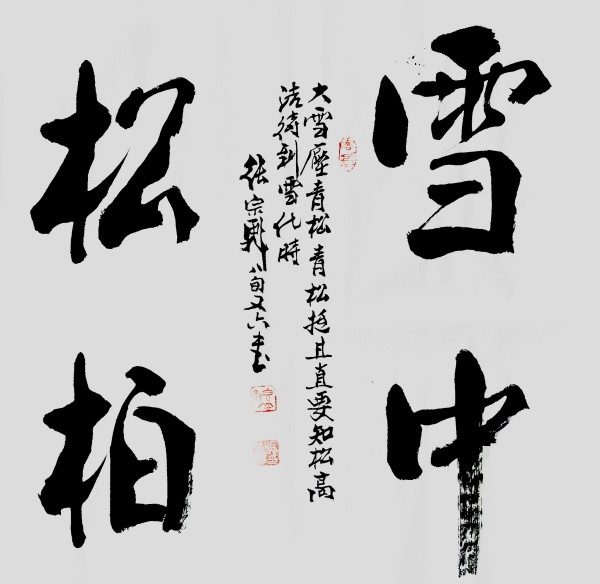 雪中
大雪壓青松青松挺且直要知松高
洁待到雪化時
張宗勳八旬又六書
松柏